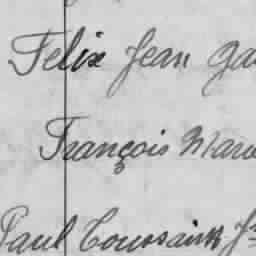 Felix Jean Ga
François Marc
Paul Toussaint J